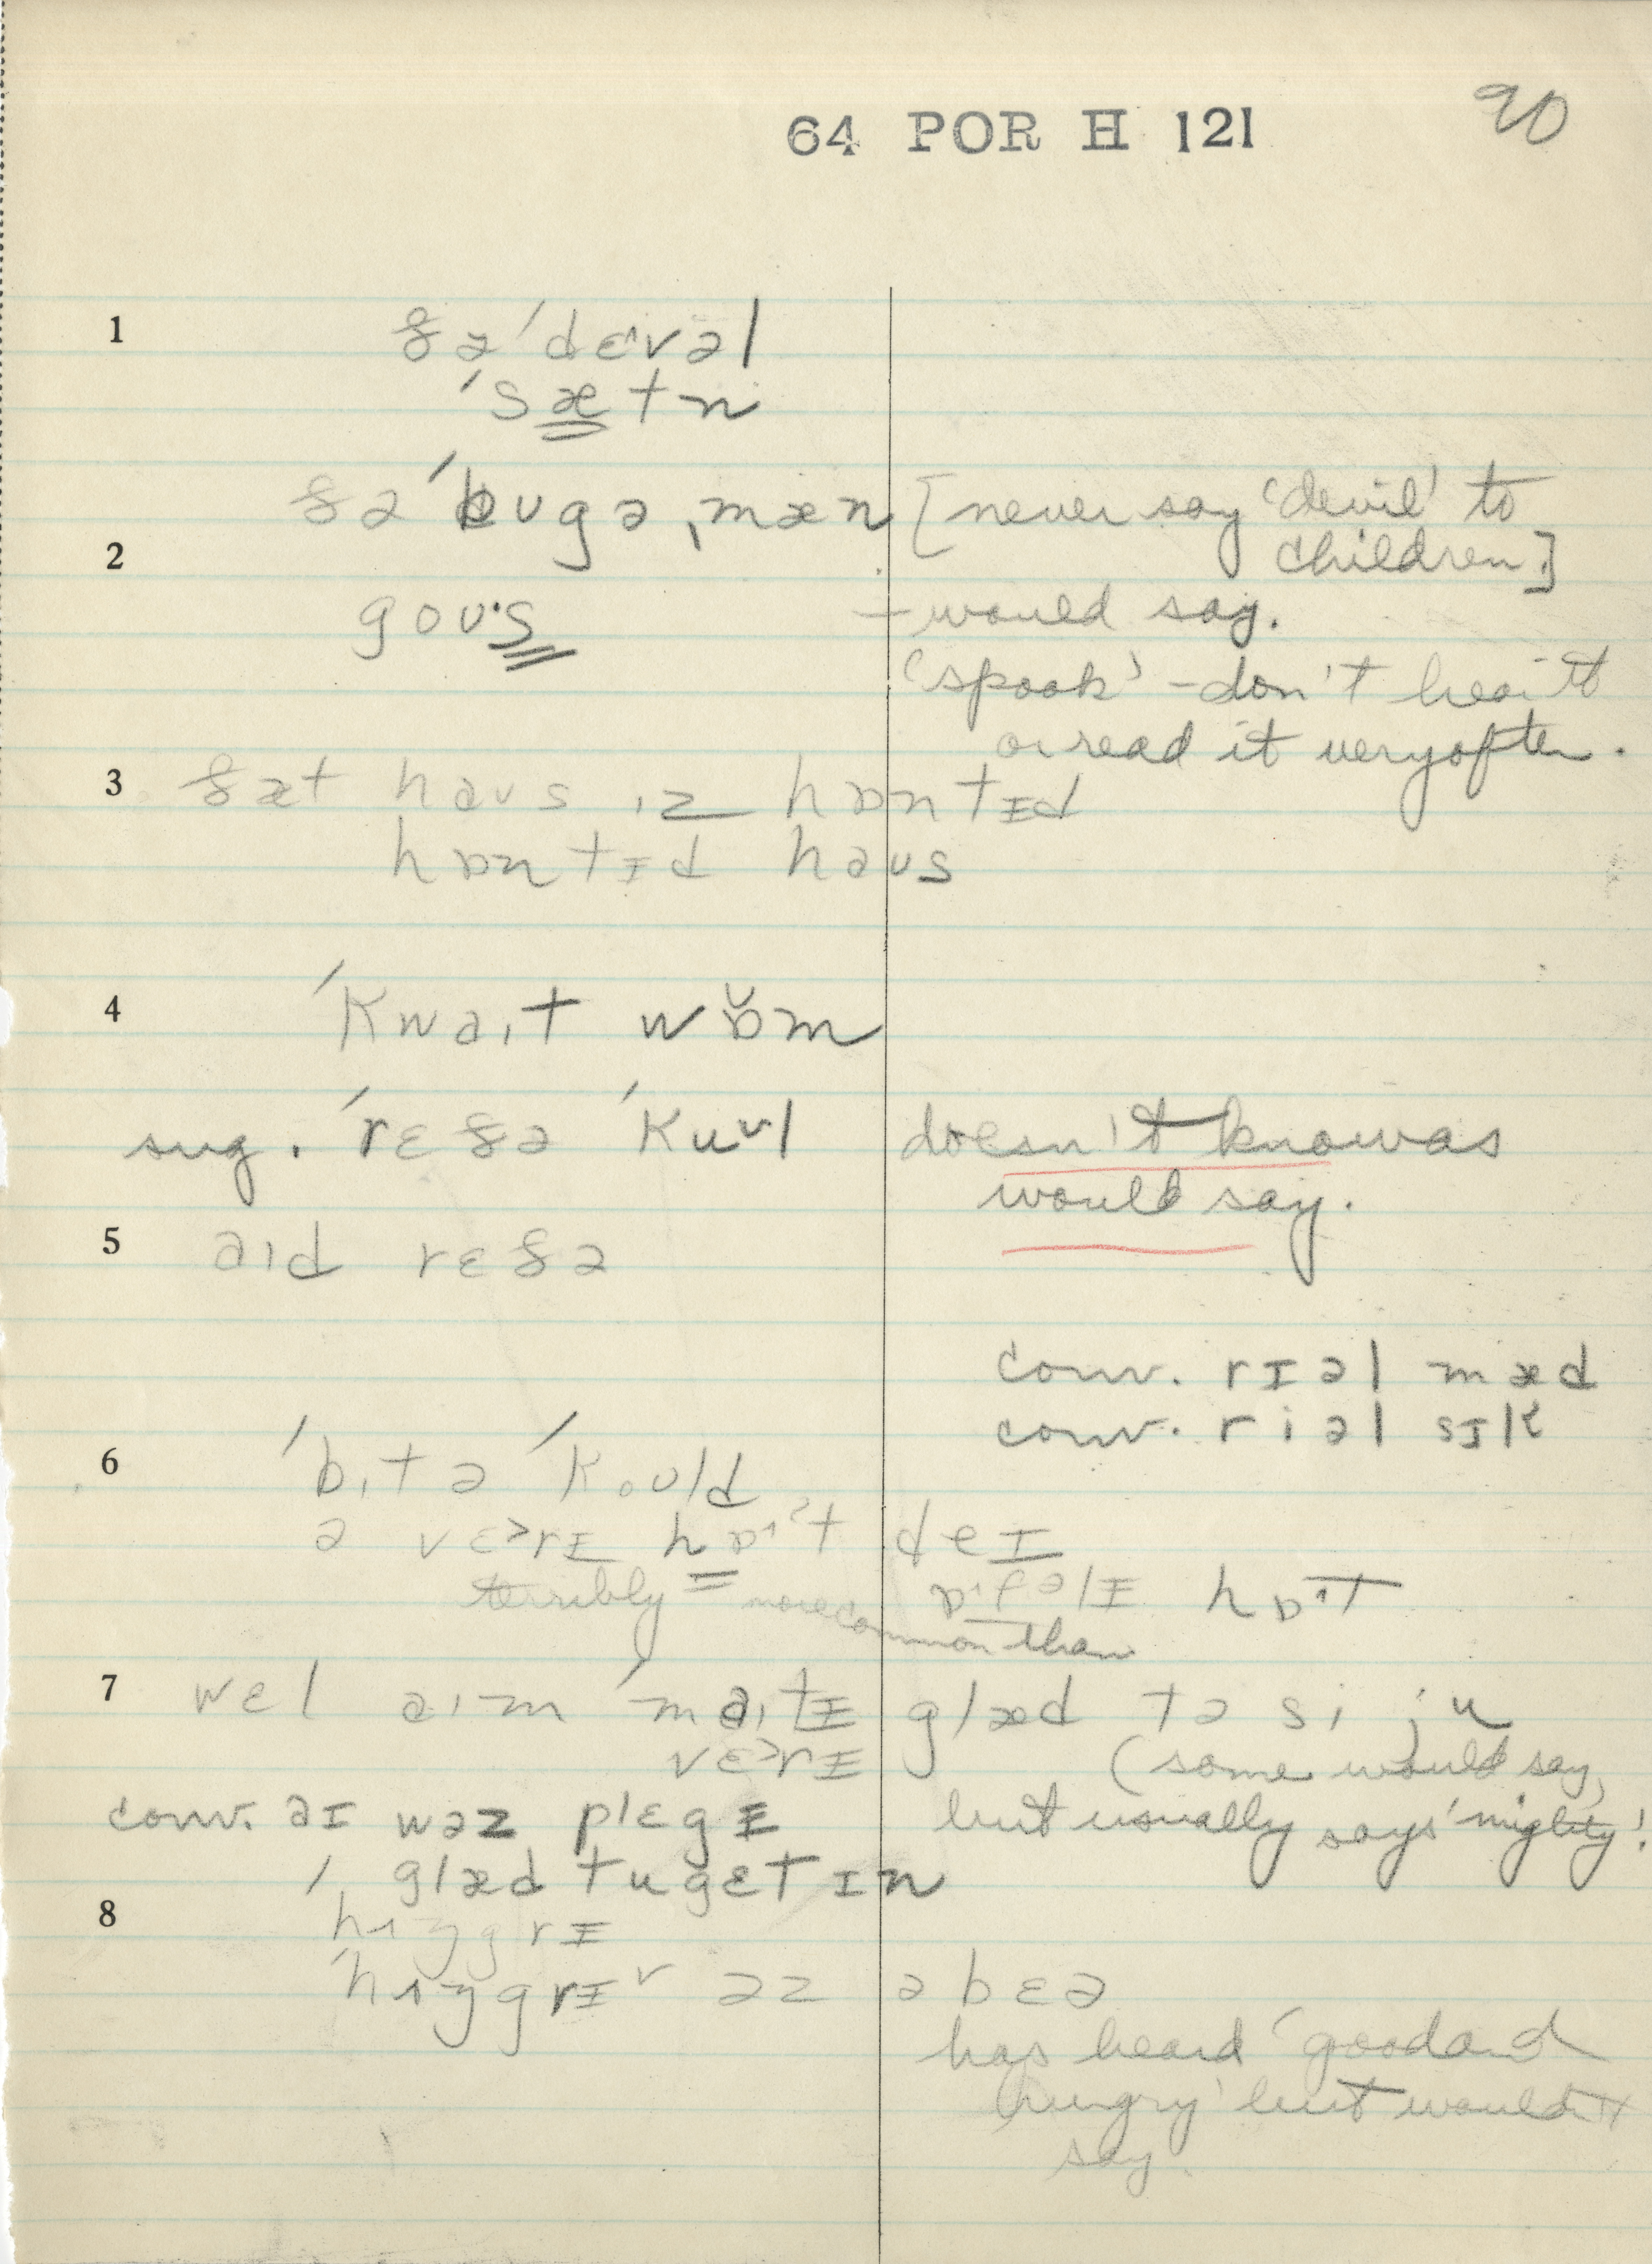 64 POR H 121
90
1 ðə ˈdɛvəl
ˈsætn
ðə ˈbʊgəˌmæn [never say 'devil' to
2 children.]
goʊs – would say.
'spook' – don't hear it
or read it very often.
3 ðæt haʊs ɪz hɒntɪd
hɒntɪd haʊs
4 ˈkwaɪt wɒ̆m
sug. ˈrɛðə ˈkuʊl doesn't know as
would say.
5 aɪd rɛðə
conv. rɪəl mæd
conv. riəl sɪk
6 ˈbɪt ə ˈkoʊld
ə vɛ>rɪ hɒ˄ʔt deɪ
terribly more common than ɒ˄fəlɪ hɒ˄t
7 wɛl aɪm ˈmaɪtɪ glæd tə si ju
vɛ>rɪ (some would say,
conv. aɪ wəz plɛgɪ but usually says 'mighty'!
glæd tu gɛt ɪn
8 ˈhʌŋgrɪ
ˈhʌŋgrɪ˅ əz ə bɛə
has heard 'good and
hungry' but wouldn't
say